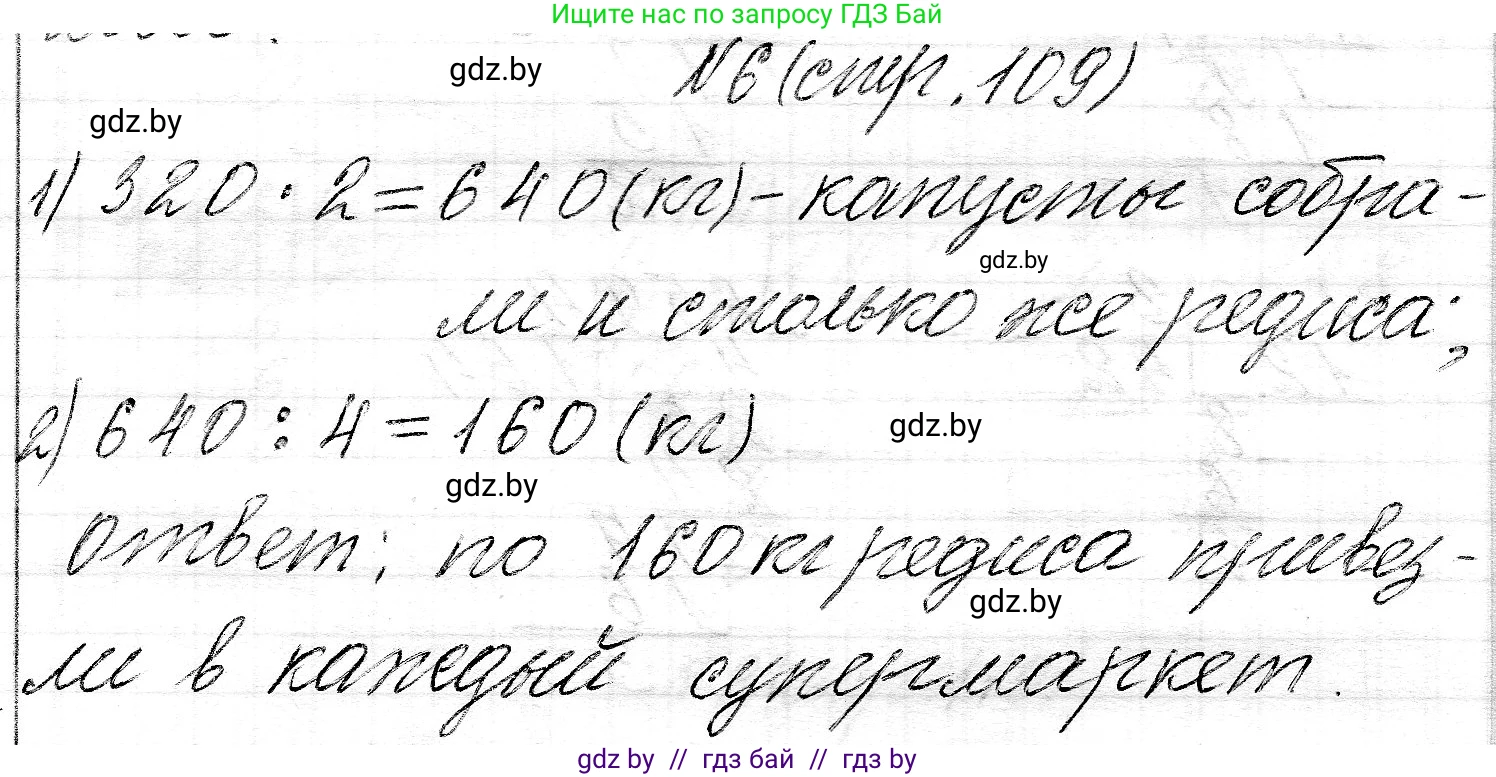 Ищите нас по запросу ГДЗ Бай
gdz.by
№6 (стр. 109)
gdz.by
1) 320 · 2 = 640 (кг) - капусты собра-
gdz.by
ли и столько же редиса;
2) 640 : 4 = 160 (кг)
gdz.by
gdz.by
ответ: по 160 кг редиса привез-
gdz.by
ли в каждый супермаркет.
gdz by // гдз бай // гдз by